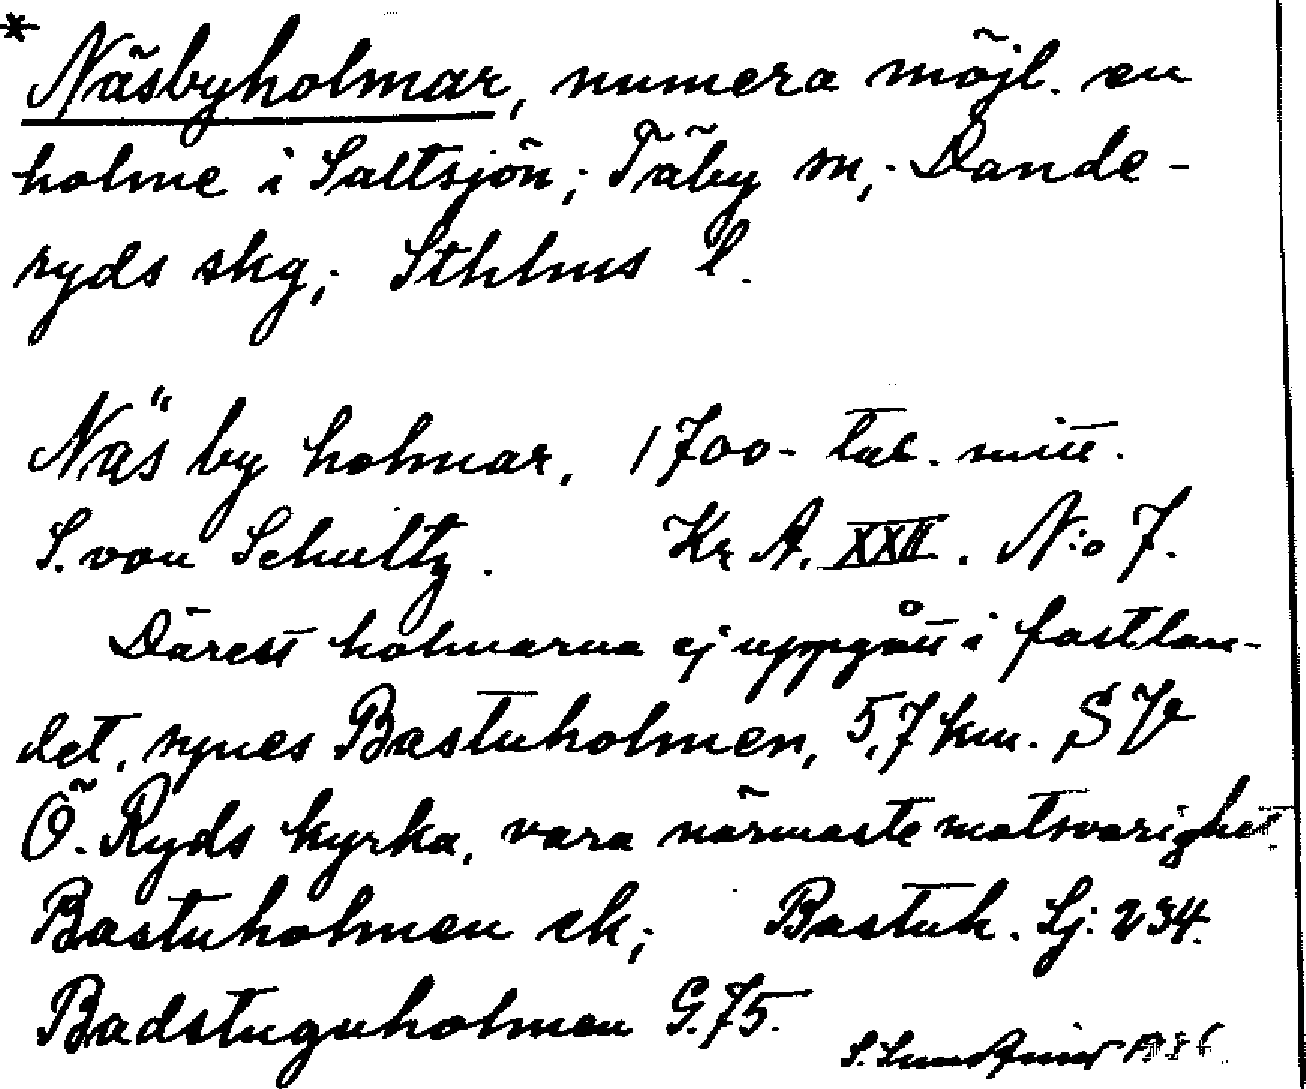 * Näsbyholmar, numera möjl. en
holme i Saltsjön; Täby sn; Dande-
ryds skg; Sthlms l.
Näs by holmar. 1700-tal. mitt.
S. von Schultz. Kr A. XXII. N:o 7.
Därest holmarna ej uppgått i fastlan-
det, synes Bastuholmen, 5,7 km. SV
Ö. Ryds kyrka, vara närmaste motsvarighet.
Bastuholmen ek; Bastuh. Lj: 234.
Badstuguholmen G.75.
S. 1936